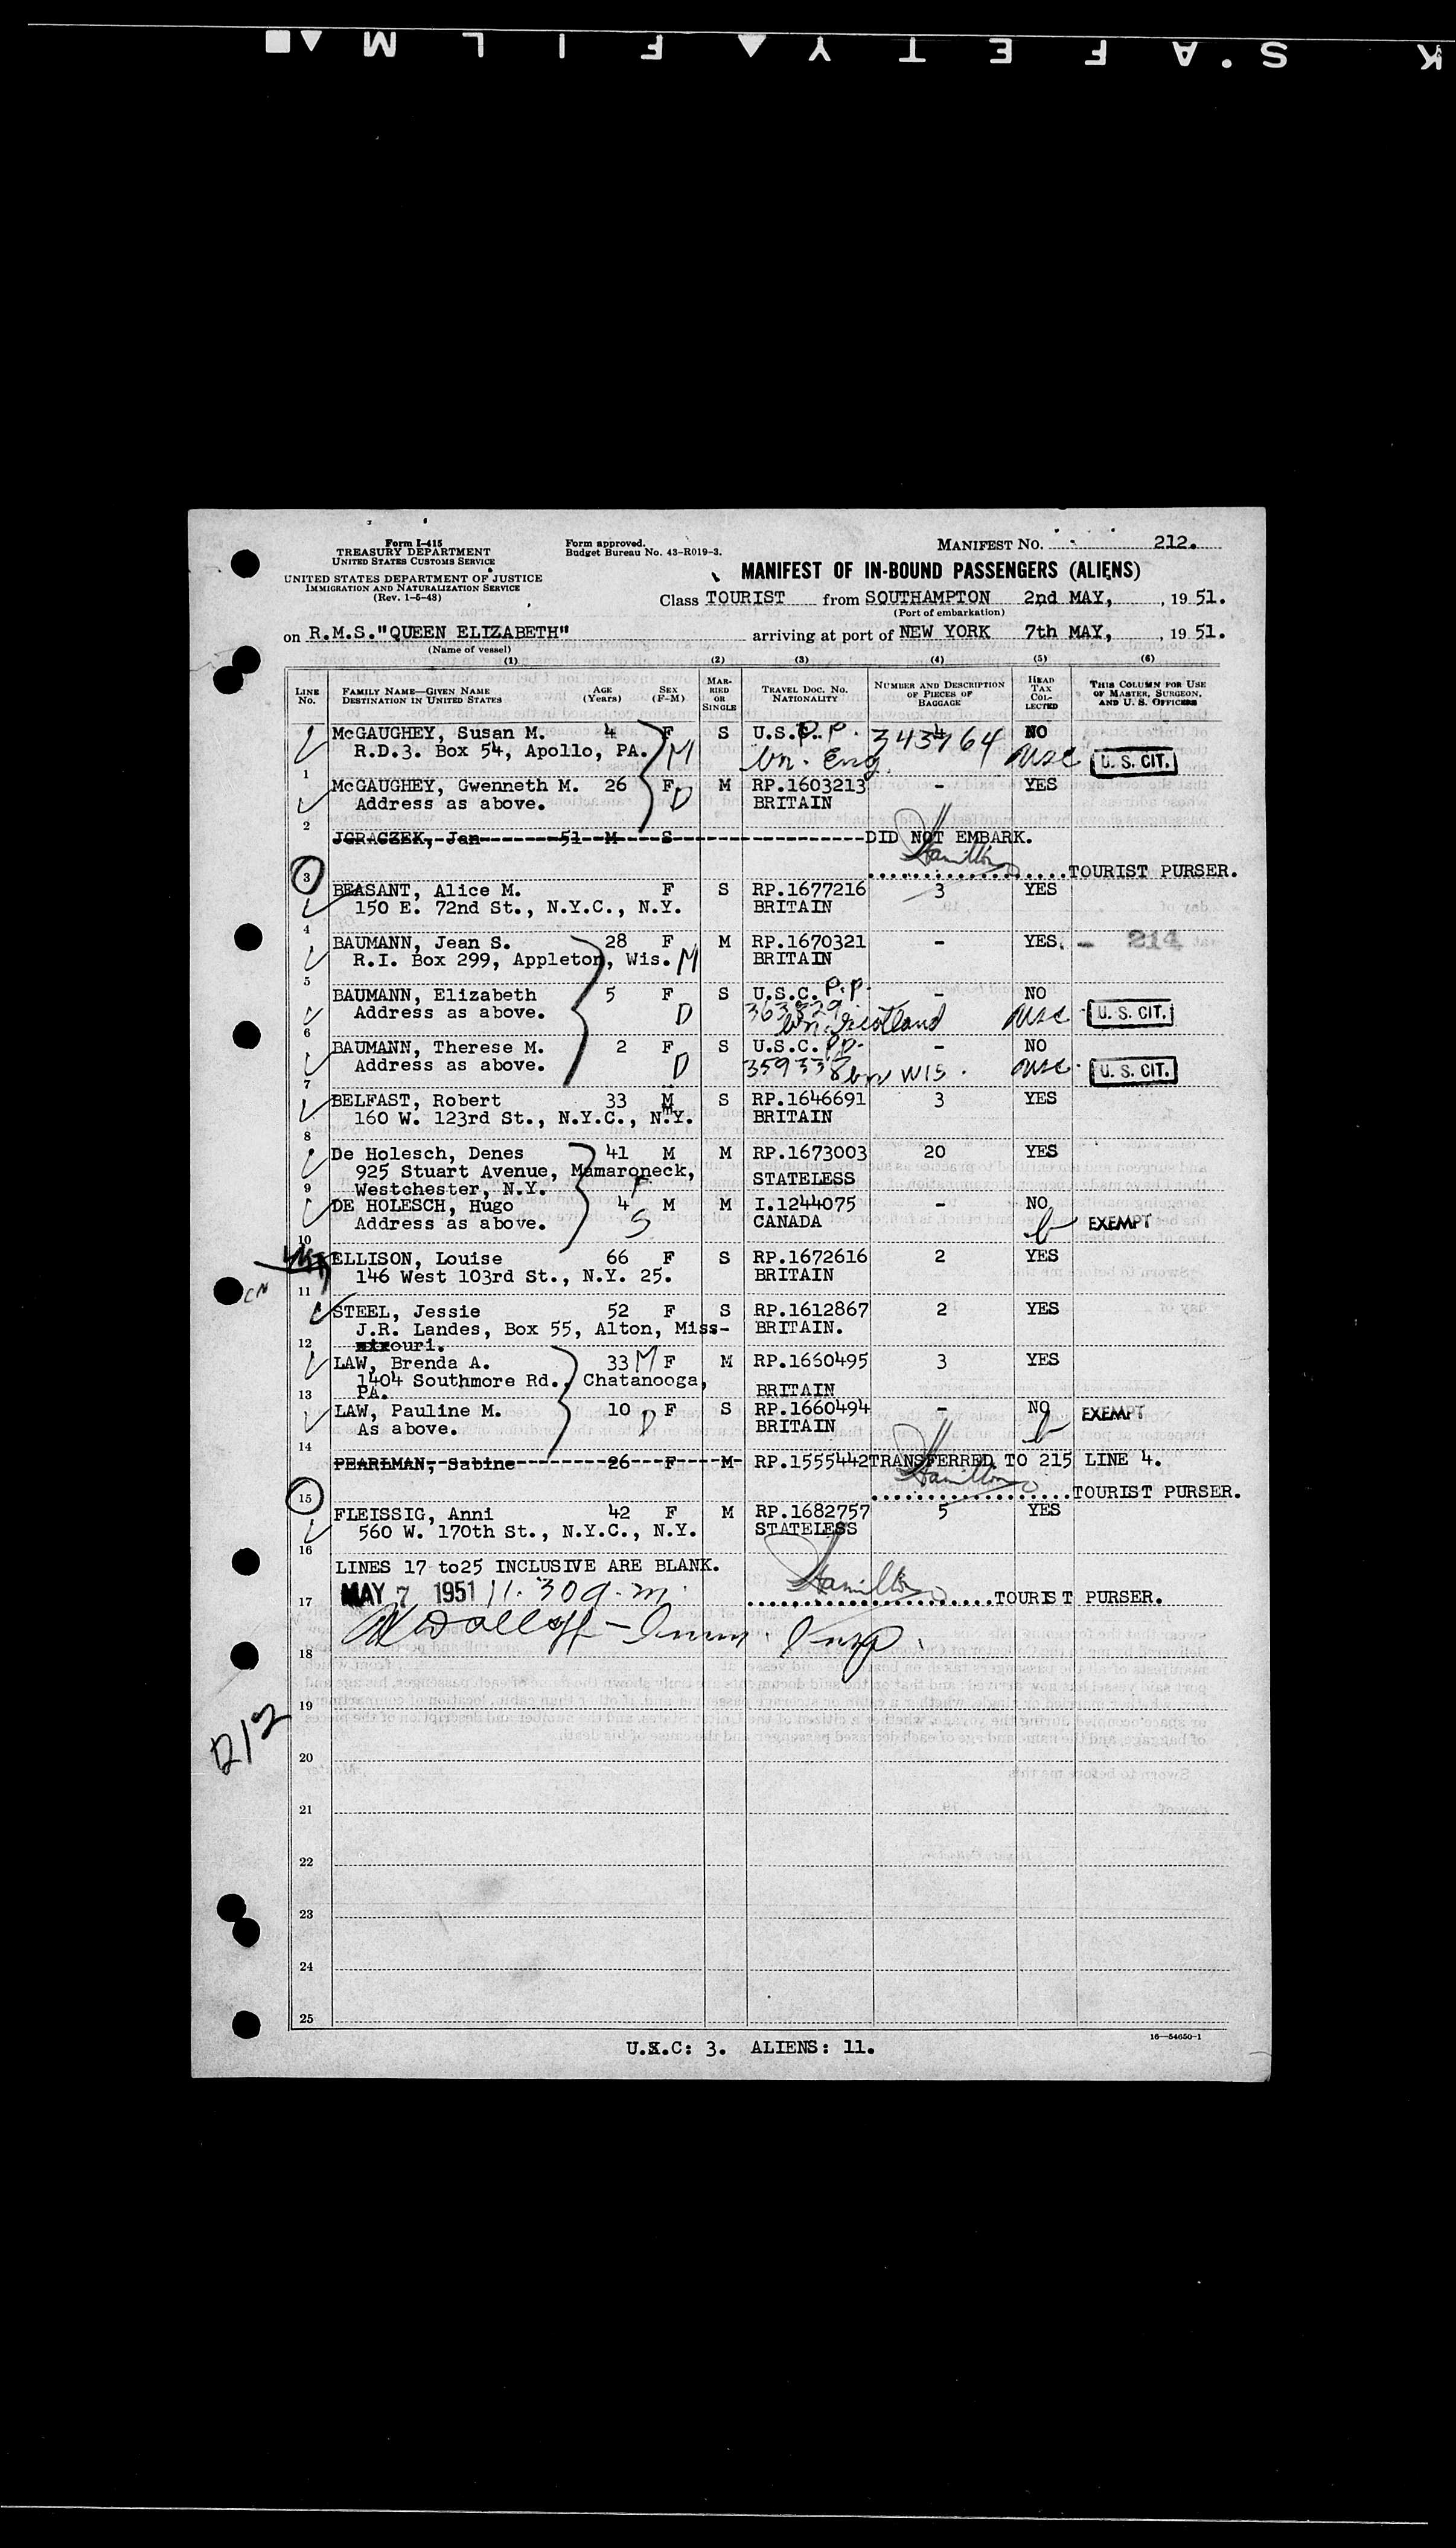 K S.A F E T Y ▲ F I L M ▲ ■
Form I-415
TREASURY DEPARTMENT
UNITED STATES CUSTOMS SERVICE
UNITED STATES DEPARTMENT OF JUSTICE
IMMIGRATION AND NATURALIZATION SERVICE
(Rev. 1-5-48)
Form approved.
Budget Bureau No. 43-R019-3.
MANIFEST NO. 212.
MANIFEST OF IN-BOUND PASSENGERS (ALIENS)
Class TOURIST from SOUTHAMPTON 2nd MAY, , 19 51.
(Port of embarkation)
on R.M.S."QUEEN ELIZABETH" arriving at port of NEW YORK 7th MAY, , 19 51.
(Name of vessel)
(1) (2) (3) (4) (5) (6)
LINE NO. FAMILY NAME—GIVEN NAME DESTINATION IN UNITED STATES AGE (Years) SEX (F-M) MARRIED OR SINGLE TRAVEL DOC. NO. NATIONALITY NUMBER AND DESCRIPTION OF PIECES OF BAGGAGE HEAD TAX COLLECTED THIS COLUMN FOR USE OF MASTER, SURGEON, AND U. S. OFFICERS
McGAUGHEY, Susan M. 4 F S U.S.C. P.P. 343764 4 NO
R.D.3. Box 54, Apollo, PA. M bn. Eng. usc U. S. CIT.
1
McGAUGHEY, Gwenneth M. 26 F D M RP.1603213 - YES
Address as above. BRITAIN
2
JGRACZEK, Jan 51 M S DID NOT EMBARK.
Hamilton
3 TOURIST PURSER.
BEASANT, Alice M. F S RP.1677216 3 YES
150 E. 72nd St., N.Y.C., N.Y. BRITAIN
4
BAUMANN, Jean S. 28 F M RP.1670321 - YES. - 214
R.I. Box 299, Appleton, Wis. M BRITAIN
5
BAUMANN, Elizabeth 5 F S U.S.C. P.P. - NO
Address as above. D 363829 bn. Scotland usc U. S. CIT.
6
BAUMANN, Therese M. 2 F S U.S.C. P.P. - NO
Address as above. D 359338 bn WIS. usc. U. S. CIT.
7
BELFAST, Robert 33 M S RP.1646691 3 YES
160 W. 123rd St., N.Y.C., N.Y. BRITAIN
8
De Holesch, Denes 41 M M RP.1673003 20 YES
925 Stuart Avenue, Mamaroneck, STATELESS
9 Westchester, N.Y. F
DE HOLESCH, Hugo 4 M M I.1244075 - NO
Address as above. S CANADA EXEMPT
10
ELLISON, Louise 66 F S RP.1672616 2 YES
146 West 103rd St., N.Y. 25. BRITAIN
CN
11
STEEL, Jessie 52 F S RP.1612867 2 YES
J.R. Landes, Box 55, Alton, Miss- BRITAIN.
12 ouri.
LAW, Brenda A. 33 M F M RP.1660495 3 YES
1404 Southmore Rd., Chatanooga,
13 PA. BRITAIN
LAW, Pauline M. 10 D F S RP.1660494 - NO EXEMPT
As above. BRITAIN
14
PEARLMAN, Sabine 26 F M RP.1555442 TRANSFERRED TO 215 LINE 4.
Hamilton
15 TOURIST PURSER.
FLEISSIG, Anni 42 F M RP.1682757 5 YES
560 W. 170th St., N.Y.C., N.Y. STATELESS
16
LINES 17 to25 INCLUSIVE ARE BLANK.
MAY 7 1951 11.30 a.m. Hamilton
17 TOURIST PURSER.
Imm. Insp.
18
19
212
20
21
22
23
24
25
16—54650-1
U.S.C: 3. ALIENS: 11.